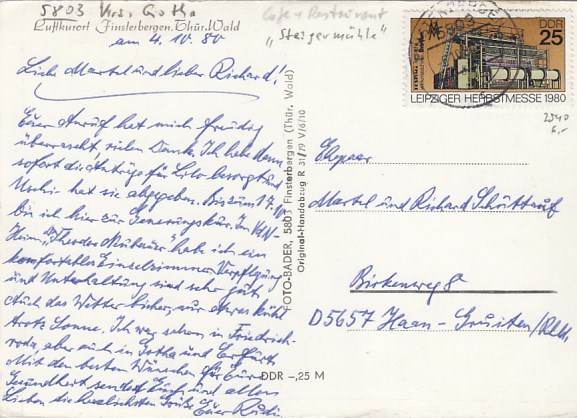 5803 Krs. Gotha
Luftkurort Finsterbergen, Thür. Wald
Cafe + Restaurant
"Steigermühle"
am 4. 10. 80
Liebe Martel und lieber Richard!
Euer Anruf hat mich freudig
überrascht, vielen Dank. Ich habe dann
sofort die Anträge für Lolo besorgt und
hat sie abgegeben. Bis zum 17. 10.
bin ich hier zur Genesungskur. Im VdN-
Heim "Theodor Neubauer" habe ich ein
komfortables Einzelzimmer. Verpflegung
und Unterhaltung sind sehr gut,
auch das Wetter bisher, nur etwas kühl
trotz Sonne. Ich war schon in Friedrich-
roda, aber auch in Gotha und Erfurt.
Mit den besten Wünschen für Eure
Gesundheit sendet Euch und allen
Lieben die herzlichsten Grüße Euer Rudi
FOTO-BADER, 5803 Finsterbergen (Thür. Wald)
Original-Handabzug R 31/79 V/6/10
DDR -,25 M
DDR
25
LEIPZIGER HERBSTMESSE 1980
2540
Ehepaar
Martel und Richard Schüttauf
Birkenweg 8
D 5657 Haan-Gruiten/Rhld.